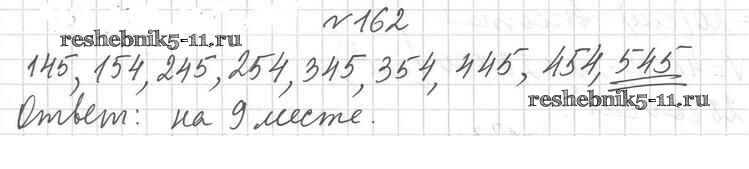 №162
reshebnik5-11.ru
145, 154, 245, 254, 345, 354, 445, 454, 545
reshebnik5-11.ru
Ответ: на 9 месте.